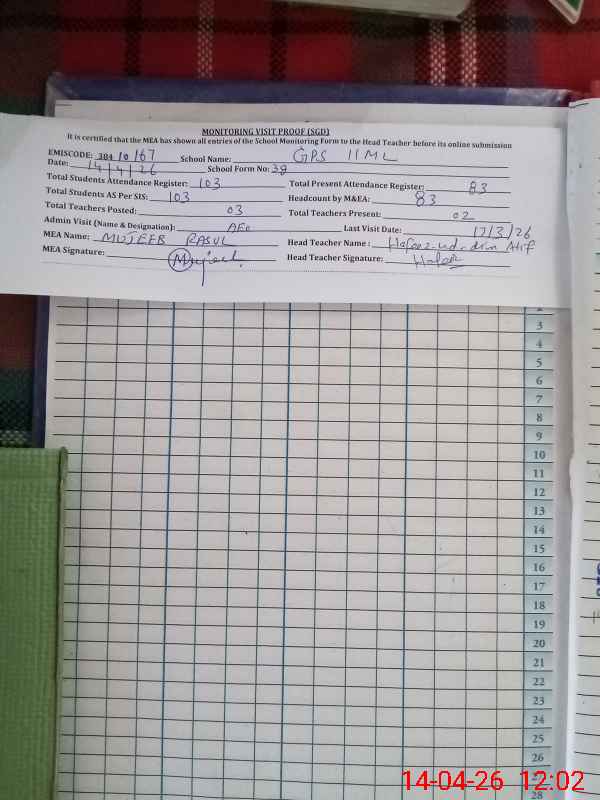 MONITORING VISIT PROOF (SGD)
It is certified that the MEA has shown all entries of the School Monitoring Form to the Head Teacher before its online submission
EMISCODE: 384 10167 School Name: GPS 11ML
Date: 14/4/26 School Form No: 38
Total Students Attendance Register: 103 Total Present Attendance Register: 83
Total Students AS Per SIS: 103 Headcount by M&EA: 83
Total Teachers Posted: 03 Total Teachers Present: 02
Admin Visit (Name & Designation): AEO Last Visit Date: 17/3/26
MEA Name: MUJEEB RASUL Head Teacher Name : Hafeez-ud-din Atif
MEA Signature: Mujeeb Head Teacher Signature: Hafeez
3
4
5
6
7
8
9
10
11
12
13
14
15
16
17
18
19
20
21
22
23
24
25
26
27
28
14-04-26 12:02